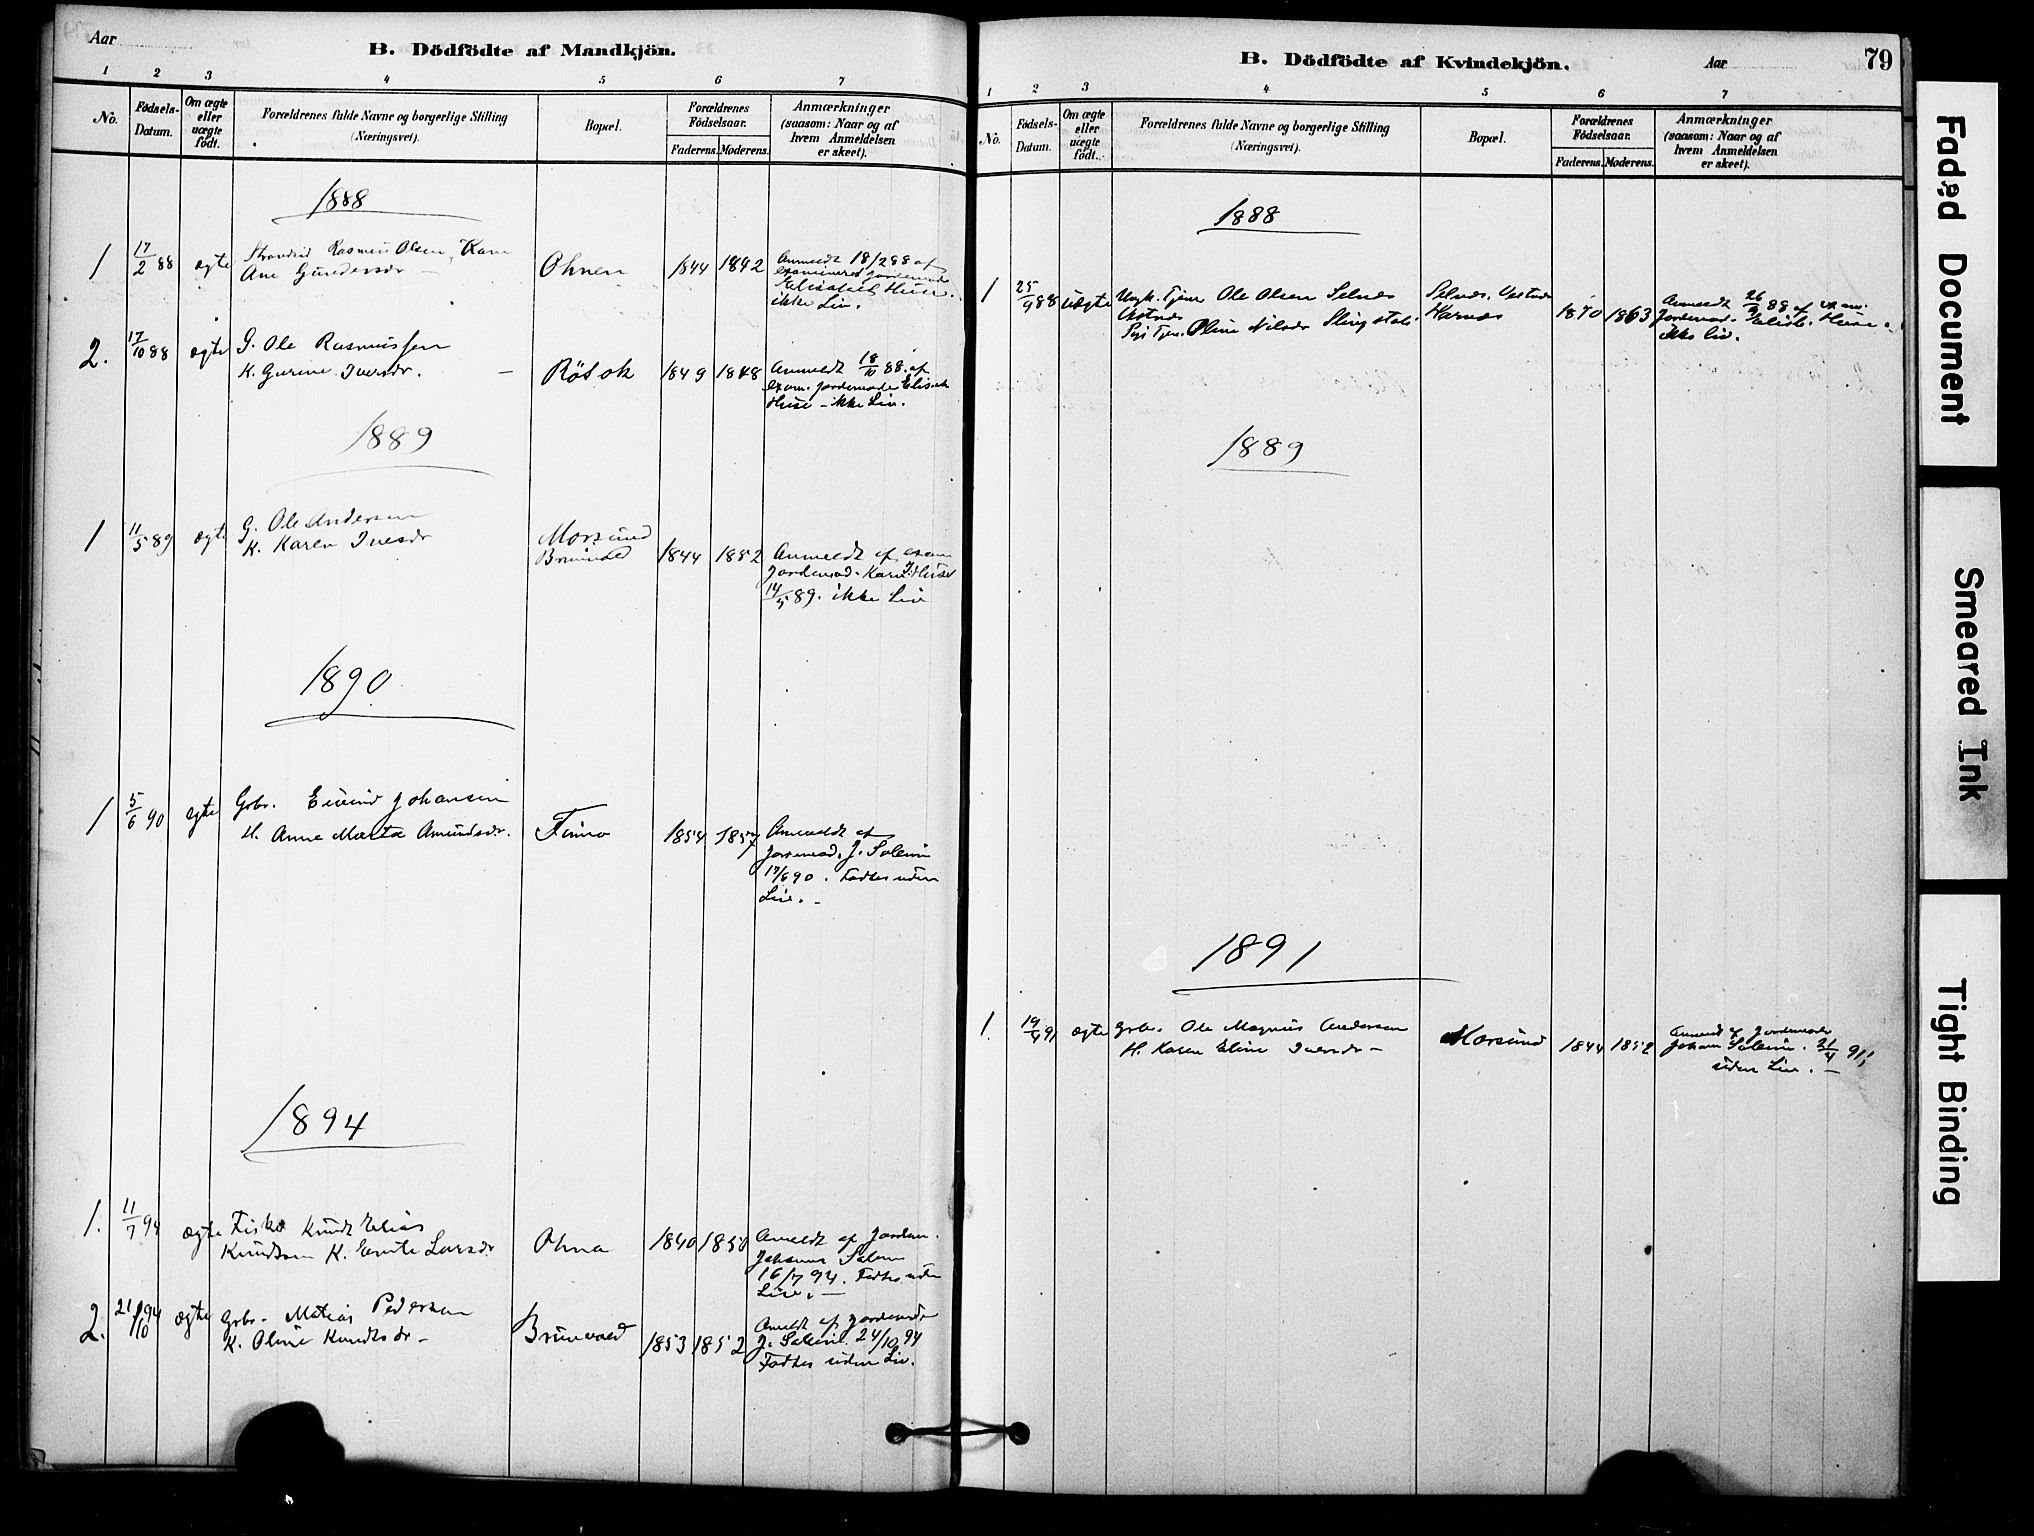 Aar
B. Dödfödte af Mandkjön.
1 2 3 4 5 6 7
No.
Födsels-Datum.
Om ægte eller uægte født.
Forældrenes fulde Navne og borgerlige Stilling (Næringsvei).
Bopæl.
Forældrenes Födselsaar.
Faderens. Moderens.
Anmærkninger (saasom: Naar og af hvem Anmeldelsen er skeet).
1888
1 17/2 88 ægte Strandsid Rasmus Olsen, Kone
Ane Gundersdr - Ohnen 1844 1842
Anmeldt 18/2 88 af
examineret Jordemoder
Elisabeth Huse.
ikke Liv.
2. 17/10 88 ægte G. Ole Rasmussen
K. Gurine Iversdr. - Röbek 1849 1848
Anmeldt 18/10 88 af
exam. Jordemoder Elisab.
Huse - ikke Liv.
1889
1 11/5 89 ægte G. Ole Andersen
K. Karen Iversdr
Morsund
Brunvold 1844 1852
Anmeldt af exam
Jordemod. Karen Huse
14/5 89. ikke Liv
1890
1 5/6 90 ægte Gbr. Eivind Johansen
H. Anne Marta Amundsdr. 1854 1857
Anmeldt af
Jordemod. J. Solem
17/6 90. Fødtes uden
Liv. -
1894
1. 11/7 94 ægte Fisker Knudt Elias
Knudtsen K. Larsdr Ohna 1840 1850
Anmeldt af Jordem.
Johanna Solem
16/7 94. Fødtes uden
Liv. -
2. 21/10 94 ægte Gbr. Matias Pedersen
K. Oline Knudtsdr - Brunvold 1853 1852
Anmeldt af Jordemoder
J. Solem 24/10 94
Fødtes uden Liv.
B. Dödfödte af Kvindekjön.
Aar
79
1 2 3 4 5 6 7
No.
Födsels-Datum.
Om ægte eller uægte födt.
Forældrenes fulde Navne og borgerlige Stilling (Næringsvei).
Bopæl.
Forældrenes Födselsaar.
Faderens. Moderens.
Anmærkninger (saasom: Naar og af hvem Anmeldelsen er skeet).
1888
1 25/9 88 uægte Ungk. Tjener Ole Olsen Selnes
Vestnes
Pige Tjen. Oline Nilsdr
Selnes, Vestnes
Harnes 1870 1863
Anmeldt 26/9 88 af exam.
Jordemod. Elisb. Huse.
ikke Liv.
1889
1891
1. 19/4 91 ægte Gbr. Ole Magnus Andersen
H. Karen Eline Iversdr - Morsund 1844 1852
Anmeldt af Jordemoder
Johana Solem. 21/4 91,
uden Liv. -
Faded Document
Smeared Ink
Tight Binding